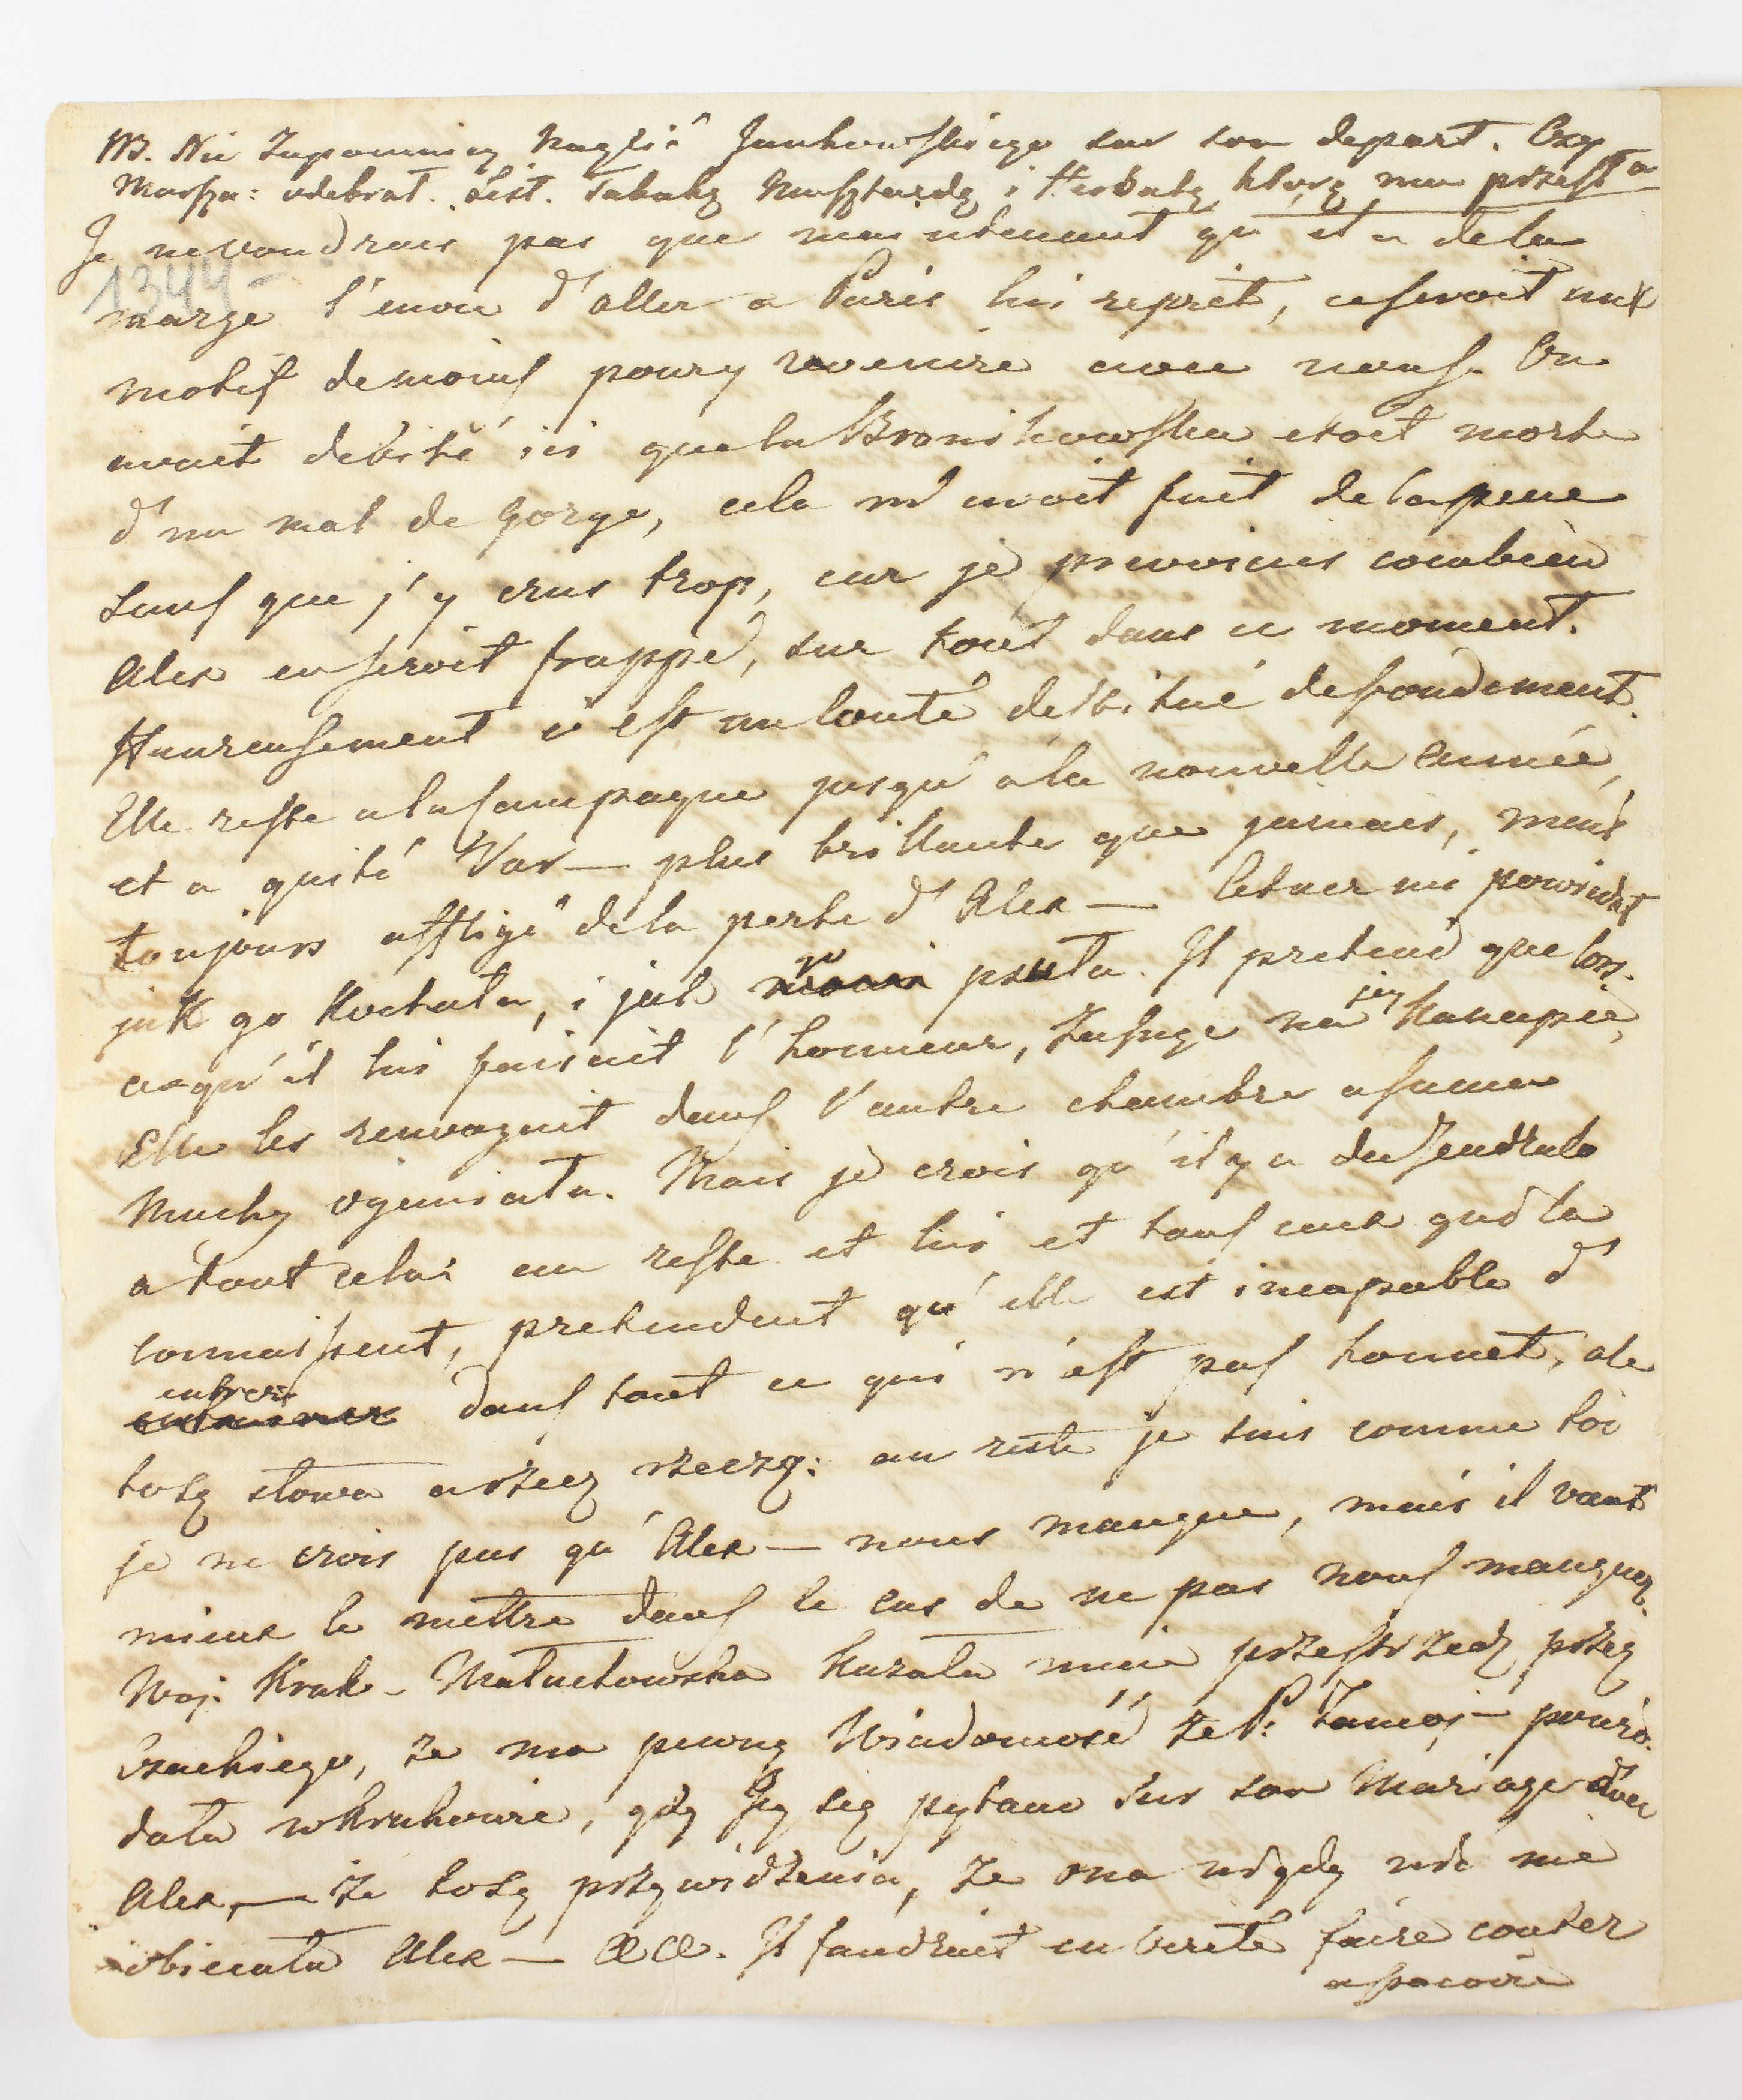 NB. Nie Zapominay Naglić Junkowskiego sur son depart. Czy
Marsza: odebrał. List. Tabakę Musztardę i Herbatę którę mu przesła
Je ne voudrais pas que maintenant qu'il a de la
1344-
marge l'envie d'aller a Paris lui reprit, ce seroit un
motif de moins pour y revenire avec nous. On
avait debité ici que la Bronikowska etoit morte
d'un mal de gorge, cela m'avoit fait de la peine
sans que j'y crus trop, car je prevoiais combien
Alex en seroit frappé, sur tout dans ce moment.
Heureusement c'est un conte debitué de fondement.
Elle reste a la Campagne jusqu'a la nouvelle année,
et a quité Var— plus brillante que jamais, mais
toujours affligé de la perte d'Alex— Cetner mi powiedał
jak go Kochała, i jak psuła. Il pretend que lors-
ce qu'il lui faisait l'honneur, Zasnąc na jey Kanapie,
Elle les renvoyait dans l'autre chambre a sama
Muchy oganiała. Mais je crois qu'il y a du Zendzula
a tout celui au reste et lui et tous ceux qui la
connaissent, pretendent qu'elle est incapable d'
entrer dans tout ce qui n'est pas honnet, ale
to są słowa a rzeczy rzeczą: au reste je suis comme toi
je ne crois pas qu'Alex— nous manque, mais il vaut
mieux le mettre dans le cas de ne pas nous manquer.
Woj: Krak- Małachowska Kazała mnie przestrzedz przez
Czackiego, że ma pewną Wiadomość że P: Zamoj— powie-
dała w Krakowie, gdy Jey się pytano sur son Mariage avec
Alex,— że to są przywidzenia, że ona nigdy nic nie
obiecała Alex— &c &c. Il faudrait en verité faire conter